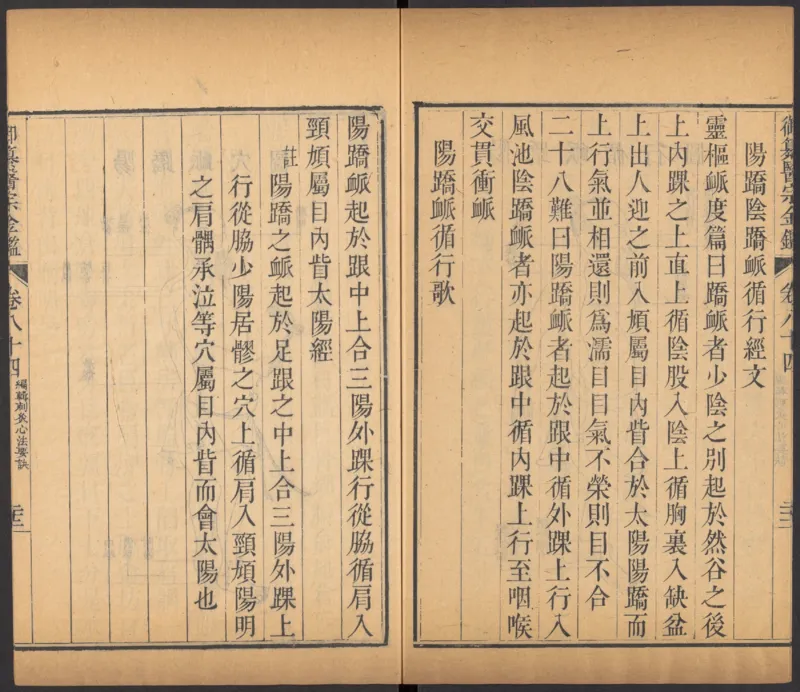 陽蹻陰蹻䘑循行經文
靈樞䘑度篇曰蹻䘑者少陰之別起於然谷之後
上內踝之上直上循陰股入陰上循胸裏入缺盆
上出人迎之前入頄屬目內眥合於太陽陽蹻而
上行氣並相還則爲濡目目氣不榮則目不合
二十八難曰陽蹻䘑者起於跟中循外踝上行入
風池陰蹻䘑者亦起於跟中循內踝上行至咽喉
交貫衝䘑
陽蹻䘑循行歌
陽蹻䘑起於跟中上合三陽外踝行從脇循肩入
頸頄屬目內眥太陽經
註陽蹻之䘑起於足跟之中上合三陽外踝上
行從脇少陽居髎之穴上循肩入頸頄陽明
之肩髃承泣等穴屬目內眥而會太陽也
御纂醫宗金鑑
卷八十四
編輯刺灸心法要訣